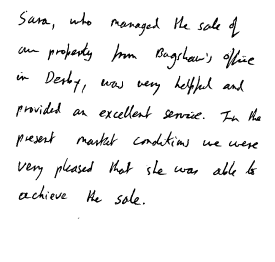 Sara, who managed the sale of
our property from Bagshaw's office
in Derby, was very helpful and
provided an excellent service. In the
present market conditions we were
very pleased that she was able to
achieve the sale.